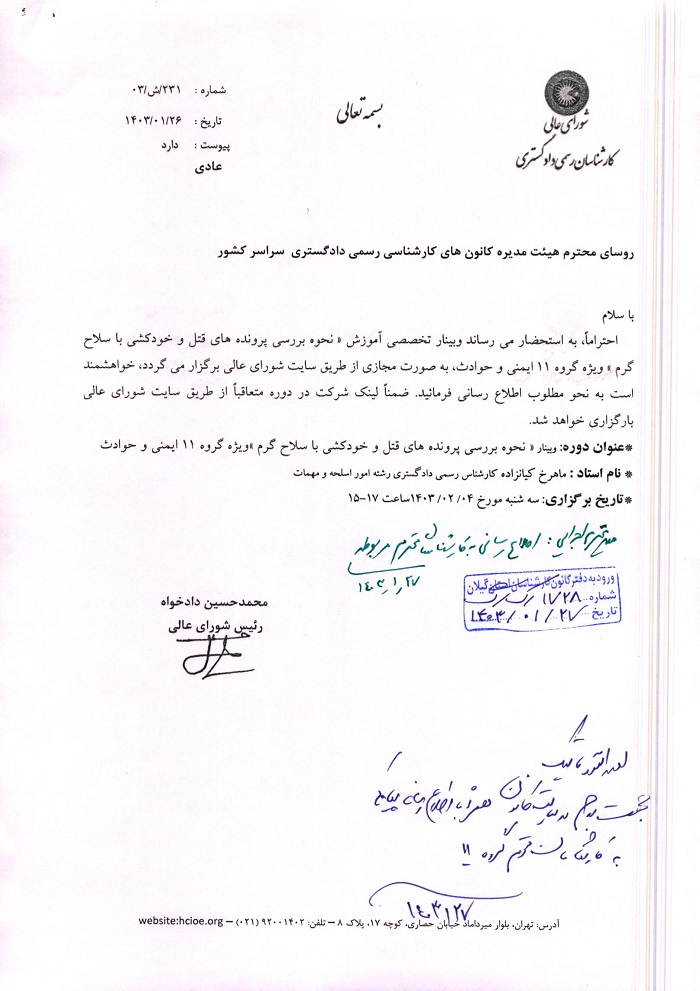 شورای عالی
کارشناسان رسمی دادگستری
بسمه تعالی
شماره : ۲۳۱/ش/۰۳
تاریخ : ۱۴۰۳/۰۱/۲۶
پیوست : دارد
عادی
روسای محترم هیئت مدیره کانون های کارشناسی رسمی دادگستری سراسر کشور
با سلام
احتراماً، به استحضار می رساند وبینار تخصصی آموزش « نحوه بررسی پرونده های قتل و خودکشی با سلاح
گرم » ویژه گروه ۱۱ ایمنی و حوادث، به صورت مجازی از طریق سایت شورای عالی برگزار می گردد، خواهشمند
است به نحو مطلوب اطلاع رسانی فرمائید. ضمناً لینک شرکت در دوره متعاقباً از طریق سایت شورای عالی
بارگزاری خواهد شد.
*عنوان دوره: وبینار « نحوه بررسی پرونده های قتل و خودکشی با سلاح گرم »ویژه گروه ۱۱ ایمنی و حوادث
* نام استاد : ماهرخ کیانزاده کارشناس رسمی دادگستری رشته امور اسلحه و مهمات
*تاریخ برگزاری: سه شنبه مورخ ۱۴۰۳/۰۲/۰۴ساعت ۱۷-۱۵
اطلاع رسانی به کارشناسان محترم مربوطه
۱۴۰۳/۱/۲۷
ورود به دفتر کانون کارشناسان استان گیلان
شماره ۱۷۲۸
تاریخ ۱۴۰۳/۰۱/۲۷
محمدحسین دادخواه
رئیس شورای عالی
به کارشناسان محترم گروه ۱۱
۱۴۰۳/۱/۲۷
آدرس: تهران، بلوار میرداماد خیابان حصاری، کوچه ۱۷، پلاک ۸ – تلفن: ۹۲۰۰۱۴۰۲ (۰۲۱) – website:hcioe.org